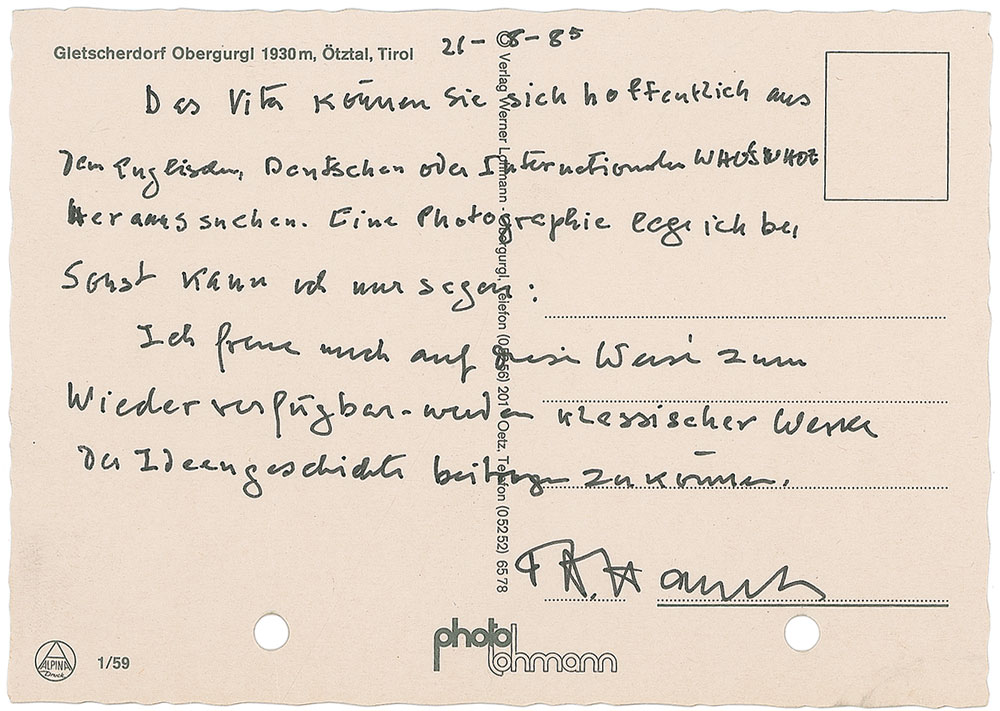 Gletscherdorf Obergurgl 1930 m, Ötztal, Tirol
21-8-85
Das Vita können Sie sich hoffentlich aus
dem Englischen, Deutschen oder Internationalen WHO'S WHO
Heraussuchen. Eine Photographie lege ich bei
Sonst kann ich nur sagen:
Ich freue mich auf diese Weise zum
Wiederverfügbar-werden klassischer Werke
der Ideengeschichte beitragen zu können.
© Verlag Werner Lohmann · Obergurgl, Telefon (05256) 201 Oetz, Telefon (05252) 6578
photo
lohmann
ALPINA
Druck
1/59